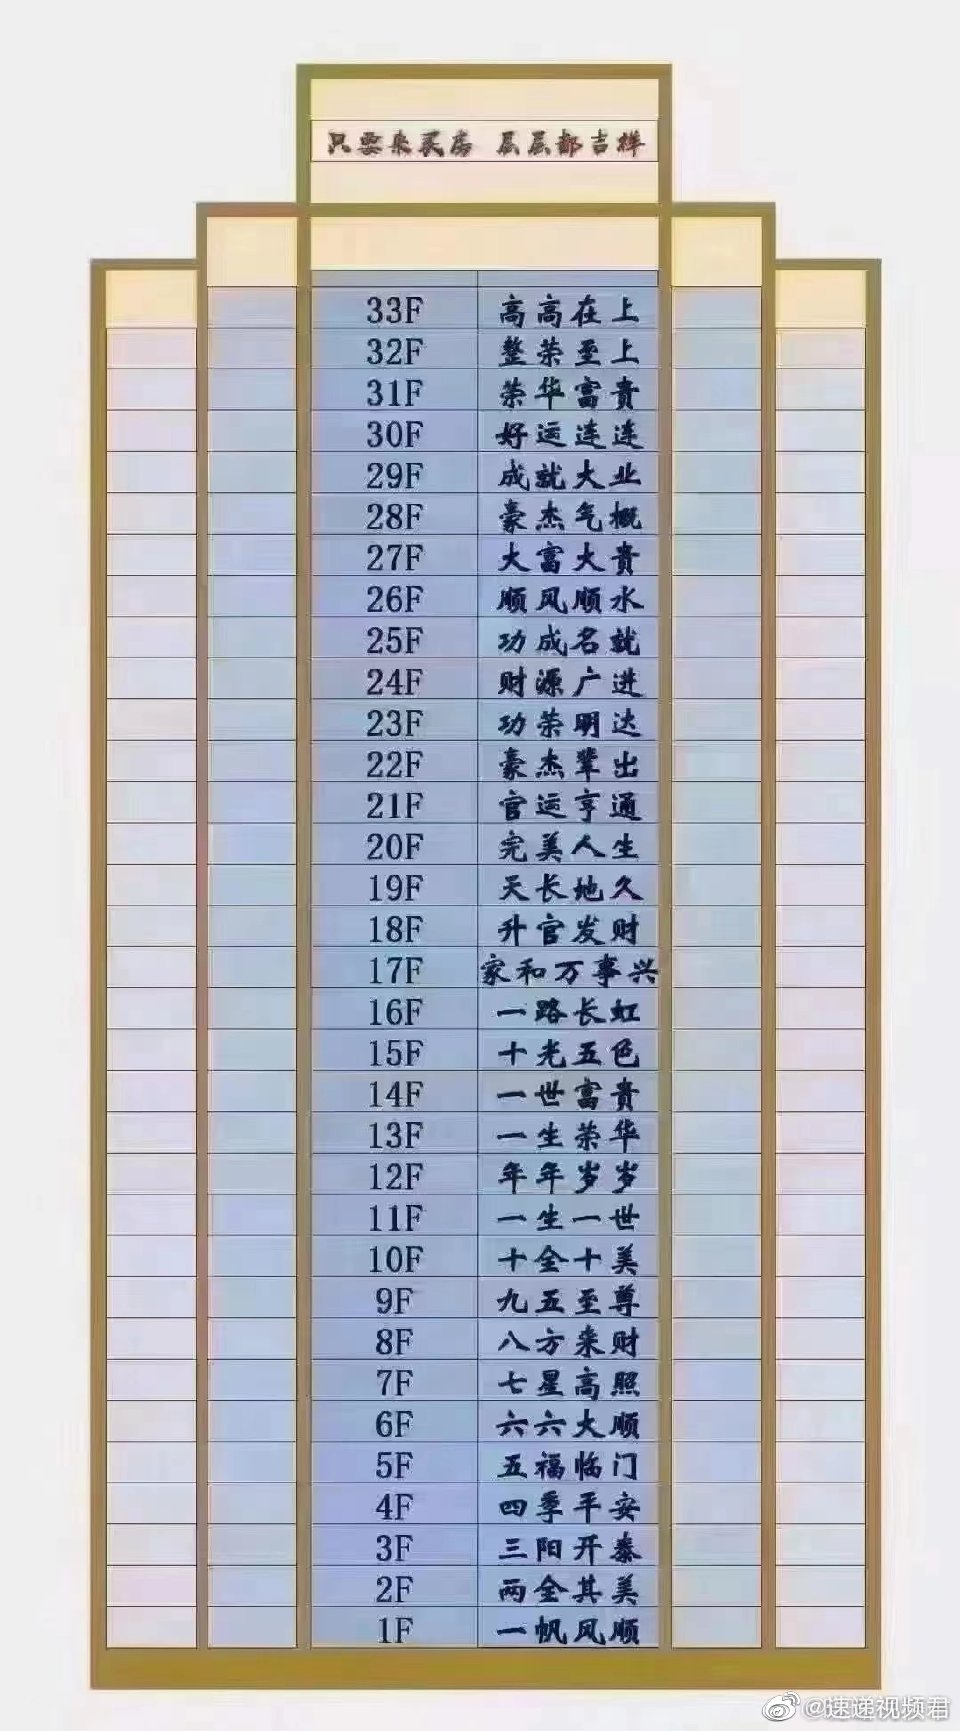 只要来买房 层层都吉祥
33F 高高在上
32F 整荣至上
31F 荣华富贵
30F 好运连连
29F 成就大业
28F 豪杰气概
27F 大富大贵
26F 顺风顺水
25F 功成名就
24F 财源广进
23F 功荣明达
22F 豪杰辈出
21F 官运亨通
20F 完美人生
19F 天长地久
18F 升官发财
17F 家和万事兴
16F 一路长虹
15F 十光五色
14F 一世富贵
13F 一生荣华
12F 年年岁岁
11F 一生一世
10F 十全十美
9F 九五至尊
8F 八方来财
7F 七星高照
6F 六六大顺
5F 五福临门
4F 四季平安
3F 三阳开泰
2F 两全其美
1F 一帆风顺
@速递视频君